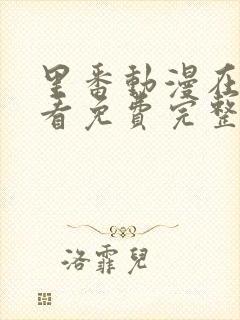 里番動漫在
看免費完整
洛霏兒